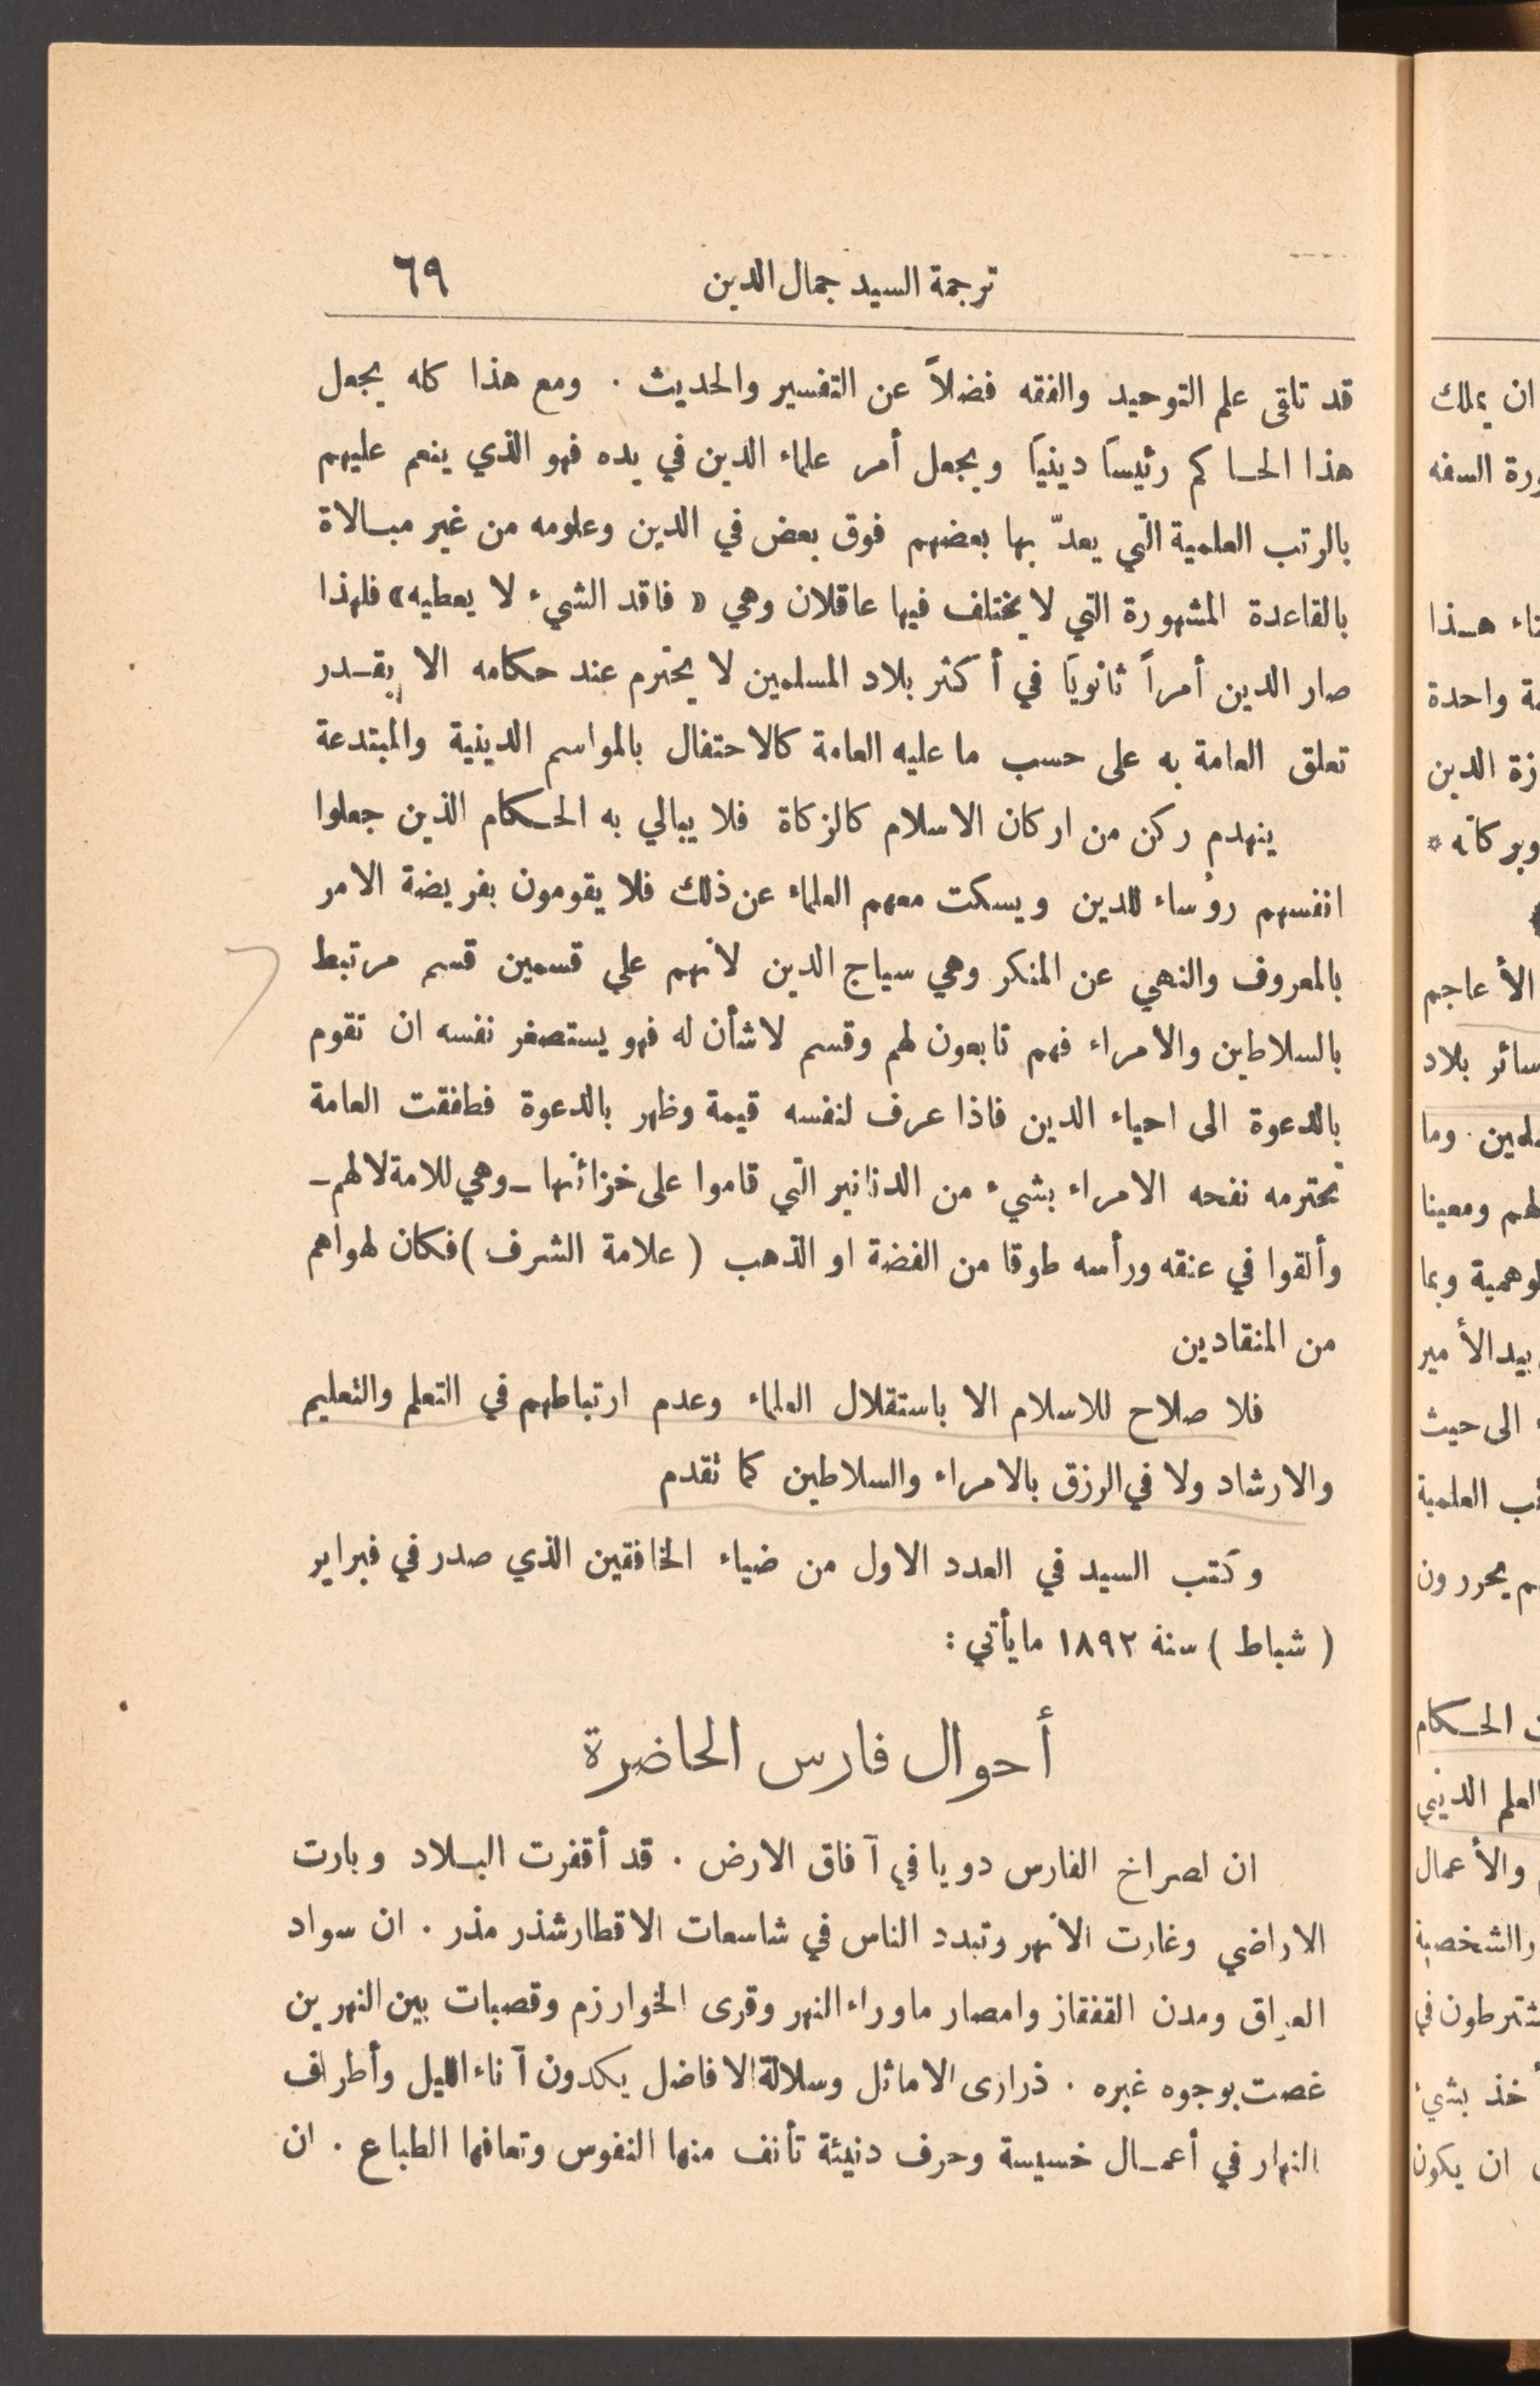 ترجمة السيد جمال الدين ٦٩
قد تلقى علم التوحيد والفقه فضلاً عن التفسير والحديث . ومع هذا كله يجعل
هذا الحاكم رئيساً دينياً ويجعل أمر علماء الدين في يده فهو الذي ينعم عليهم
بالرتب العلمية التي يعدّ بها بعضهم فوق بعض في الدين وعلومه من غير مبالاة
بالقاعدة المشهورة التي لا يختلف فيها عاقلان وهي « فاقد الشيء لا يعطيه» فلهذا
صار الدين أمراً ثانوياً في أكثر بلاد المسلمين لا يحترم عند حكامه الا بقدر
تعلق العامة به على حسب ما عليه العامة كالاحتفال بالمواسم الدينية والمبتدعة
ينهدم ركن من اركان الاسلام كالزكاة فلا يبالي به الحكام الذين جعلوا
انفسهم روٴساء للدين ويسكت معهم العلماء عن ذلك فلا يقومون بفريضة الامر
بالمعروف والنهي عن المنكر وهي سياج الدين لانهم على قسمين قسم مرتبط
بالسلاطين والامراء فهم تابعون لهم وقسم لا شأن له فهو يستصغر نفسه ان تقوم
بالدعوة الى احياء الدين فاذا عرف لنفسه قيمة وظهر بالدعوة فطفقت العامة
تحترمه نفحه الامراء بشيء من الدنانير التي قاموا على خزائنها ـ وهي للامة لا لهم ـ
وألقوا في عنقه ورأسه طوقا من الفضة او الذهب ( علامة الشرف ) فكان لهواهم
من المنقادين
فلا صلاح للاسلام الا باستقلال العلماء وعدم ارتباطهم في التعلم والتعليم
والارشاد ولا في الرزق بالامراء والسلاطين كما تقدم
وكتب السيد في العدد الاول من ضياء الخافقين الذي صدر في فبراير
( شباط ) سنة ١٨٩٢ ما يأتي :
أحوال فارس الحاضرة
ان لصراخ الفارس دويا في آفاق الارض . قد أقفرت البلاد وبارت
الاراضي وغارت الانهر وتبدد الناس في شاسعات الاقطار شذر مذر . ان سواد
العراق ومدن القفقاز وامصار ماوراء النهر وقرى الخوارزم وقصبات بين النهرين
غصت بوجوه غبره . ذرارى الاماثل وسلالة الافاضل يكدون آناء الليل وأطراف
النهار في أعمال خسيسة وحرف دنيئة تأنف منها النفوس وتعافها الطباع . ان
ان يملك
السفه
هذا
واحدة
الدين
وبركاته *
الأعاجم
سائر بلاد
وما
لهم ومعينا
وبما
بيد الأمير
الى حيث
العلمية
يحررون
الحكام
العلم الديني
والأعمال
والشخصية
يشترطون في
بشيء
ان يكون